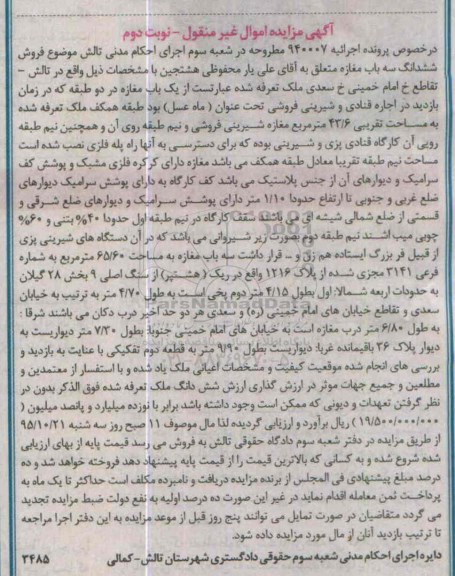 آگهی مزایده اموال غیر منقول - نوبت دوم
درخصوص پرونده اجرائیه ۹۴۰۰۰۷ مطروحه در شعبه سوم اجرای احکام مدنی تالش موضوع فروش
ششدانگ سه باب مغازه متعلق به آقای علی یار محفوظی هشتجین با مشخصات ذیل واقع در تالش -
تقاطع خ امام خمینی خ سعدی ملک تعرفه شده عبارتست از یک باب مغازه در دو طبقه که در زمان
بازدید در اجاره قنادی و شیرینی فروشی تحت عنوان ( ماه عسل) بود طبقه همکف ملک تعرفه شده
به مساحت تقریبی ۴۳/۶ مترمربع مغازه شیرینی فروشی و نیم طبقه روی آن و همچنین نیم طبقه
رویی آن کارگاه قنادی پزی و شیرینی بوده که برای دسترسی به آنها راه پله فلزی نصب شده است
مساحت نیم طبقه تقریبا معادل طبقه همکف می باشد مغازه دارای کرکره فلزی مشبک و پوشش کف
سرامیک و دیوارهای آن از جنس پلاستیک می باشد کف کارگاه به دارای پوشش سرامیک دیوارهای
ضلع غربی و جنوبی تا ارتفاع حدودا ۱/۱۰ متر دارای پوشش سرامیک و دیوارهای ضلع شرقی و
قسمتی از ضلع شمالی شیشه ای می باشد سقف کارگاه در نیم طبقه اول حدودا ۴۰% بتنی و ۶۰%
چوبی میب اشند نیم طبقه دوم بصورت زیر شیروانی می باشد که در آن دستگاه های شیرینی پزی
از قبیل فر بزرگ ایستاده هم زن و - قرار داشت سه باب مغازه به مساحت ۶۵/۶۰ مترمربع به شماره
فرعی ۳۱۴۱ مجزی شده از پلاک ۱۲۱۶ واقع در ریک ( هشتپر) از سنگ اصلی ۹ بخش ۲۸ گیلان
به حدودات اربعه شمالا: اول بطول ۴/۱۵ متر دوم پخی است به طول ۴/۷۰ متر به ترتیب به خیابان
سعدی و تقاطع خیابان های امام خمینی (ره) و سعدی هر دو حد اخیر درب دکان می باشند شرقا :
به طول ۶/۸۰ متر درب مغازه است به خیابان های امام خمینی جنوبا: بطول ۷/۳۰ متر دیواریست به
دیوار پلاک ۳۶ باقیمانده غربا: دیواریست بطول ۹/۹۰ متر به قطعه دوم تفکیکی با عنایت به بازدید و
بررسی های انجام شده موقعیت کیفیت و مشخصات اعیانی ملک یاد شده و با استفسار از معتمدین و
مطلعین و جمیع جهات موثر در ارزش گذاری ارزش شش دانگ ملک تعرفه شده فوق الذکر بدون در
نظر گرفتن تعهدات و دیونی که ممکن است وجود داشته باشد برابر با نوزده میلیارد و پانصد میلیون (
۱۹/۵۰۰/۰۰۰/۰۰۰ ) ریال برآورد و ارزیابی گردیده لذا مال موصوف ۱۱ صبح روز سه شنبه ۹۵/۱۰/۲۱
از طریق مزایده در دفتر شعبه سوم دادگاه حقوقی تالش به فروش می رسد قیمت پایه از بهای ارزیابی
شده شروع شده و به کسانی که بالاترین قیمت را از قیمت پایه پیشنهاد دهد فروخته خواهد شد و ده
درصد مبلغ پیشنهادی فی المجلس از برنده مزایده دریافت و نامبرده مکلف است حداکثر تا یک ماه به
پرداخت ثمن معامله اقدام نماید در غیر این صورت ده درصد اولیه به نفع دولت ضبط مزایده تجدید
می گردد متقاضیان در صورت تمایل می توانند پنج روز قبل از موعد مزایده به این دفتر اجرا مراجعه
تا ترتیب بازدید آنان از مال مورد مزایده داده شود.
دایره اجرای احکام مدنی شعبه سوم حقوقی دادگستری شهرستان تالش - کمالی ۳۴۸۵